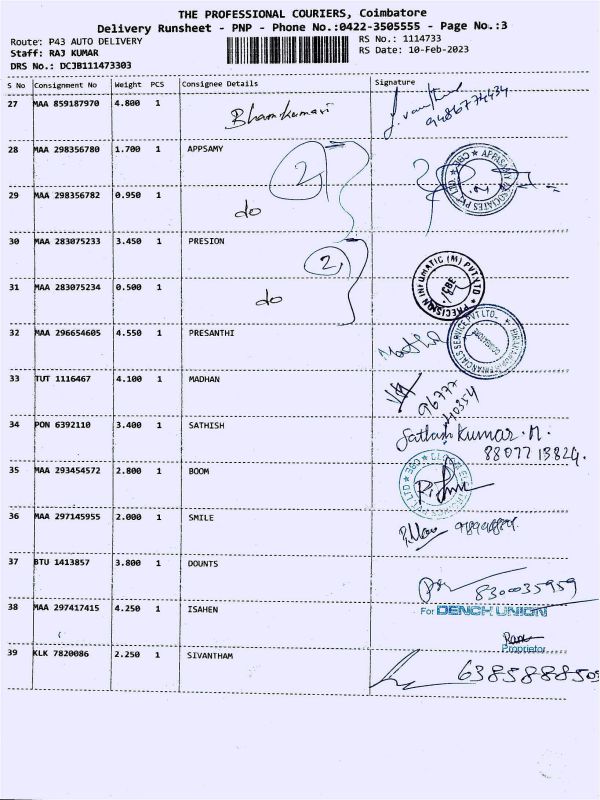 THE PROFESSIONAL COURIERS, Coimbatore
Delivery Runsheet - PNP - Phone No.:0422-3505555 - Page No.:3
Route: P43 AUTO DELIVERY
RS No.: 1114733
Staff: RAJ KUMAR
RS Date: 10-Feb-2023
DRS No.: DCJB111473303
S No Consignment No Weight PCS Consignee Details Signature
27 MAA 859187970 4.800 1 Bhamkumari
28 MAA 298356780 1.700 1 APPSAMY 2
29 MAA 298356782 0.950 1 do
30 MAA 283075233 3.450 1 PRESION 2
31 MAA 283075234 0.500 1 do
PRECISION INFOMATIC (M) PVT. LTD
32 MAA 296654605 4.550 1 PRESANTHI
33 TUT 1116467 4.100 1 MADHAN
96777
40354
34 PON 6392110 3.400 1 SATHISH Sathish Kumar.N.
8807713824.
35 MAA 293454572 2.800 1 BOOM
36 MAA 297145955 2.000 1 SMILE
37 BTU 1413857 3.800 1 DOUNTS
8300035959
38 MAA 297417415 4.250 1 ISAHEN For DENCH UNION
Proprietor
39 KLK 7820086 2.250 1 SIVANTHAM 6385888505